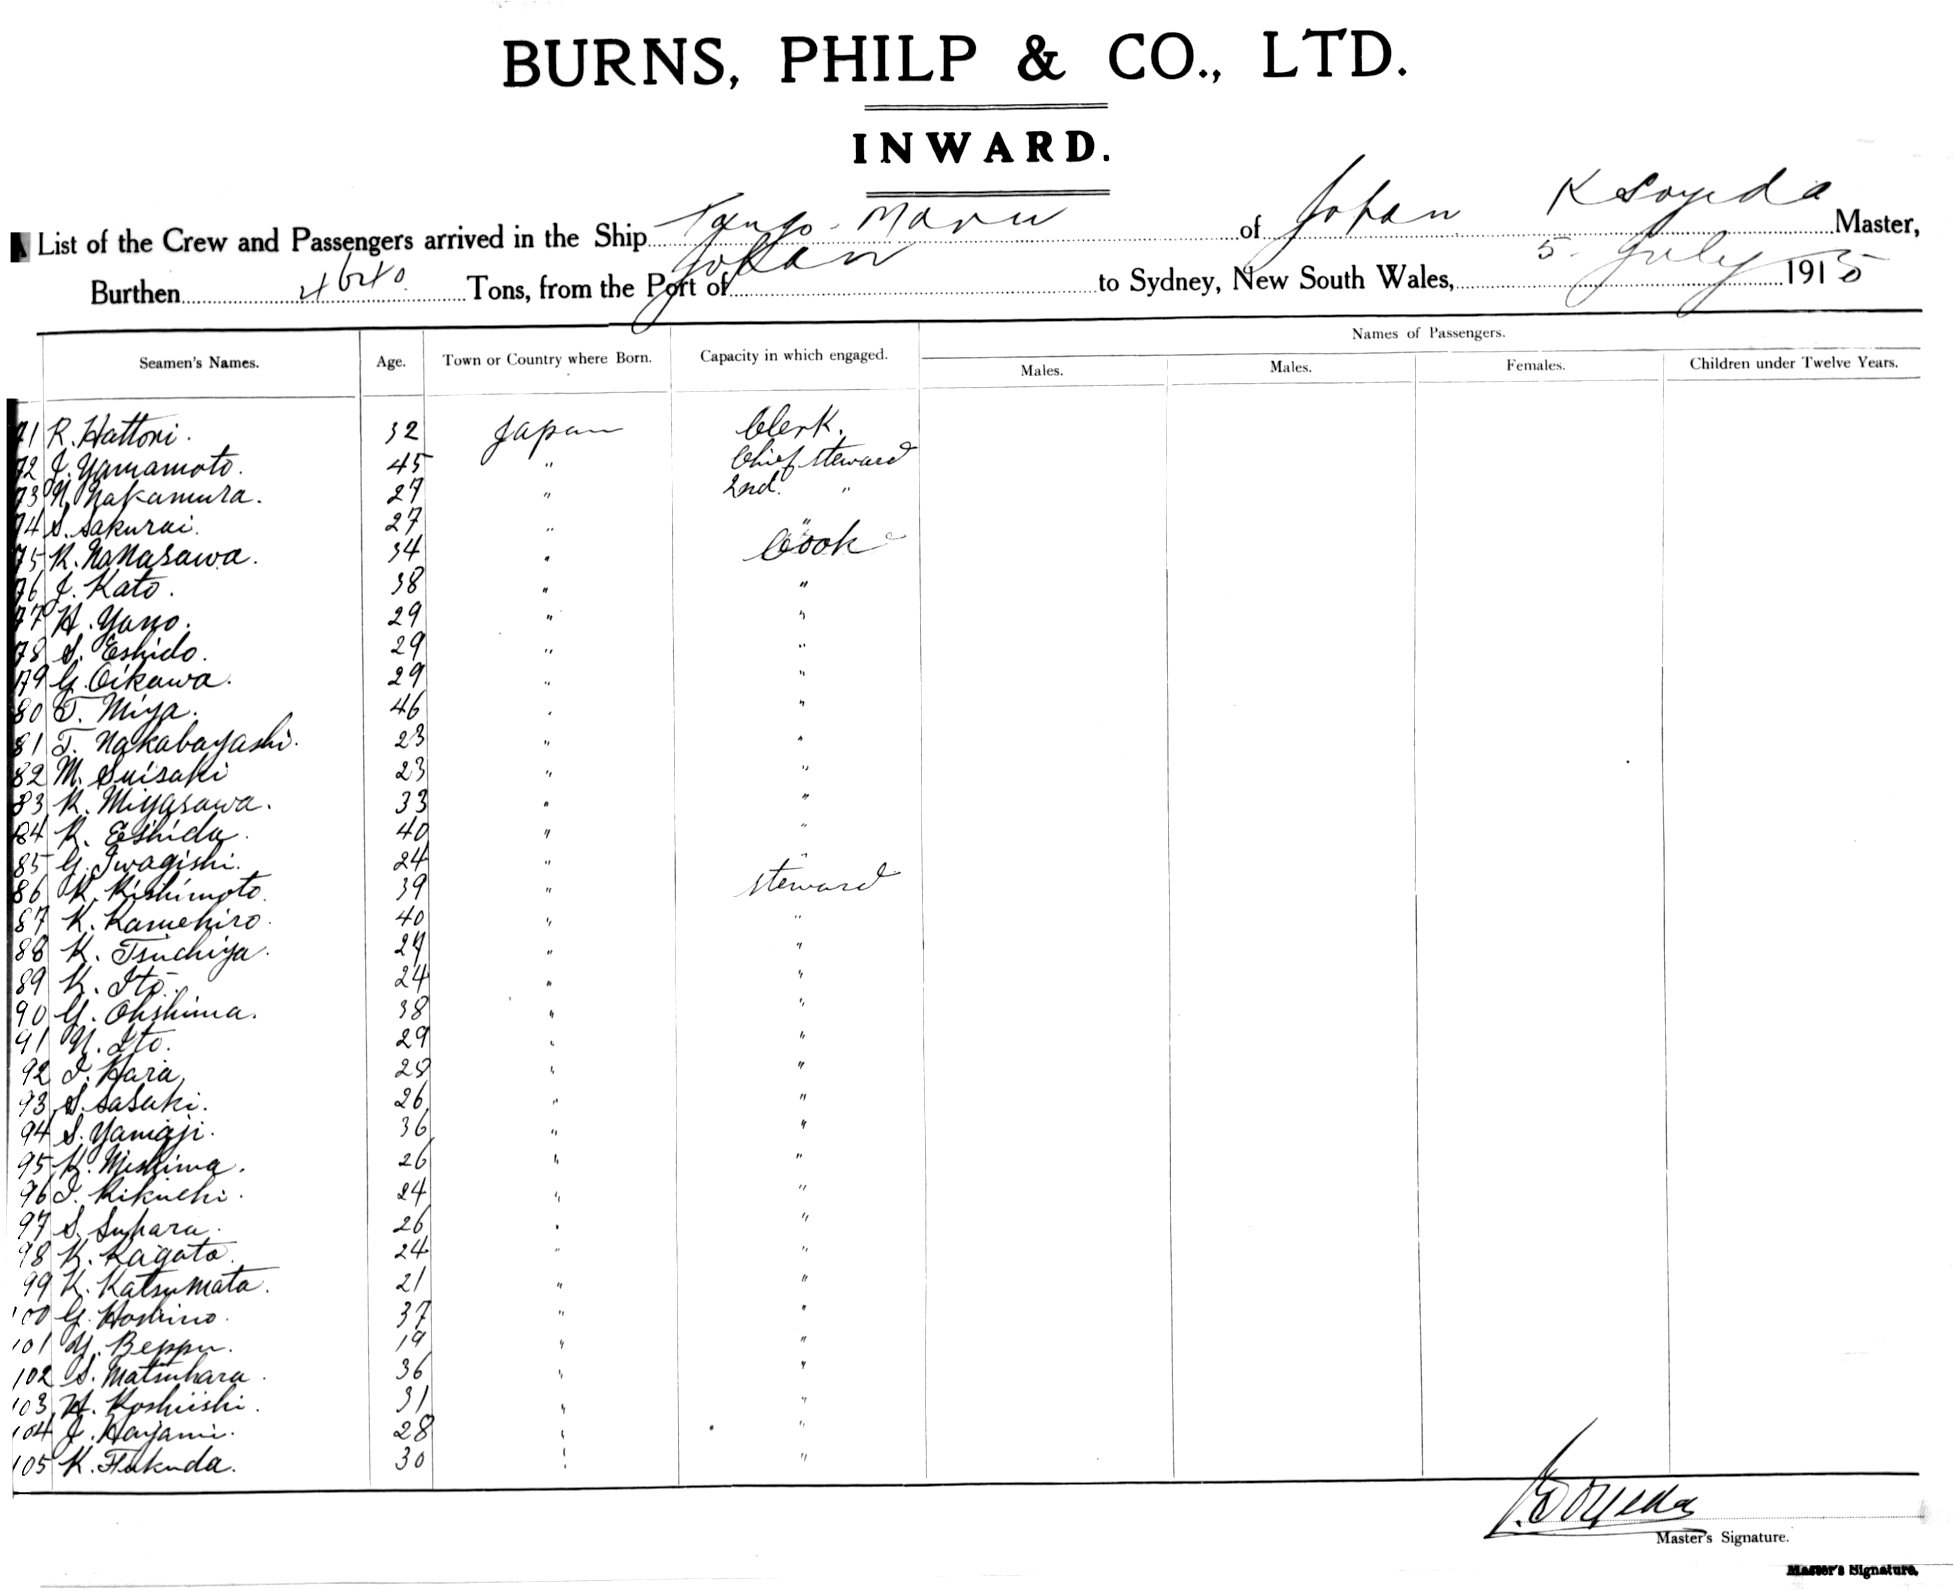 BURNS, PHILP & CO., LTD.
INWARD.
List of the Crew and Passengers arrived in the Ship Tango Maru of Japan K Soyeda Master,
Burthen Tons, from the Port of Japan to Sydney, New South Wales, 5 July 1915
Names of Passengers.
Seamen's Names. Age. Town or Country where Born. Capacity in which engaged. Males. Males. Females. Children under Twelve Years.
71 R. Hattori. 32 Japan Clerk.
72 J. Yamamoto. 45 " Chief steward
73 N. Nakamura. 27 " 2nd. "
74 S. Sakurai. 27 " "
75 K. Nanasawa. 34 " Cook
76 J. Kato. 38 " "
77 H. Yano. 29 " "
78 S. Eshido. 29 " "
79 G. Oikawa. 29 " "
80 T. Miya. 46 " "
81 T. Nakabayashi. 23 " "
82 M. Suisaki 23 " "
83 K. Miyasawa. 33 " "
84 K. Eshida. 40 " "
85 G. Iwagishi. 24 " "
86 K. Kishimoto. 39 " steward
87 K. Kamehiro. 40 " "
88 K. Tsuchiya. 29 " "
89 K. Ito. 24 " "
90 G. Ohshima. 38 " "
91 N. Ito. 29 " "
92 I. Hara. 28 " "
93 S. Sasaki. 26 " "
94 S. Yamaji. 36 " "
95 K. Mishima. 26 " "
96 I. Kikuchi. 24 " "
97 S. Suhara. 26 " "
98 K. Kagato. 24 " "
99 K. Katsumata. 21 " "
100 G. Hoshino. 37 " "
101 Y. Beppu. 19 " "
102 S. Matsuhara. 36 " "
103 H. Koshiishi. 31 " "
104 J. Hayami. 28 " "
105 K. Fukuda. 30 " "
K. Soyeda
Master's Signature.
Master's Signature.